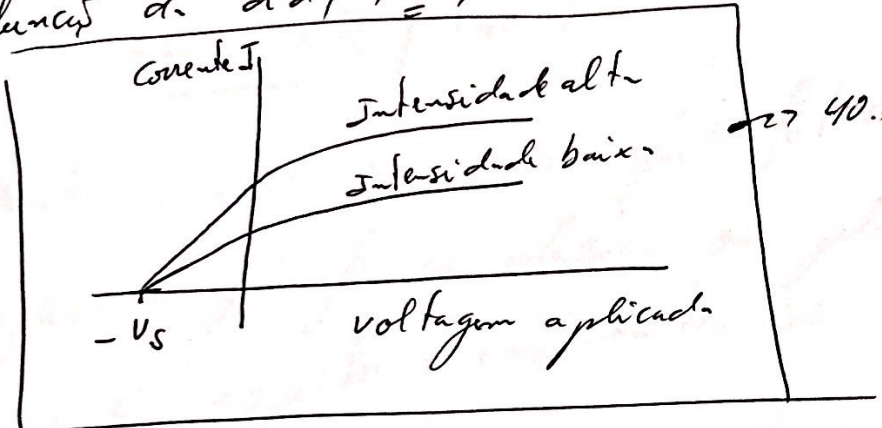 função da
Corrente I
Intensidade alta
→ 40.
Intensidade baixa
- Vs
voltagem aplicada